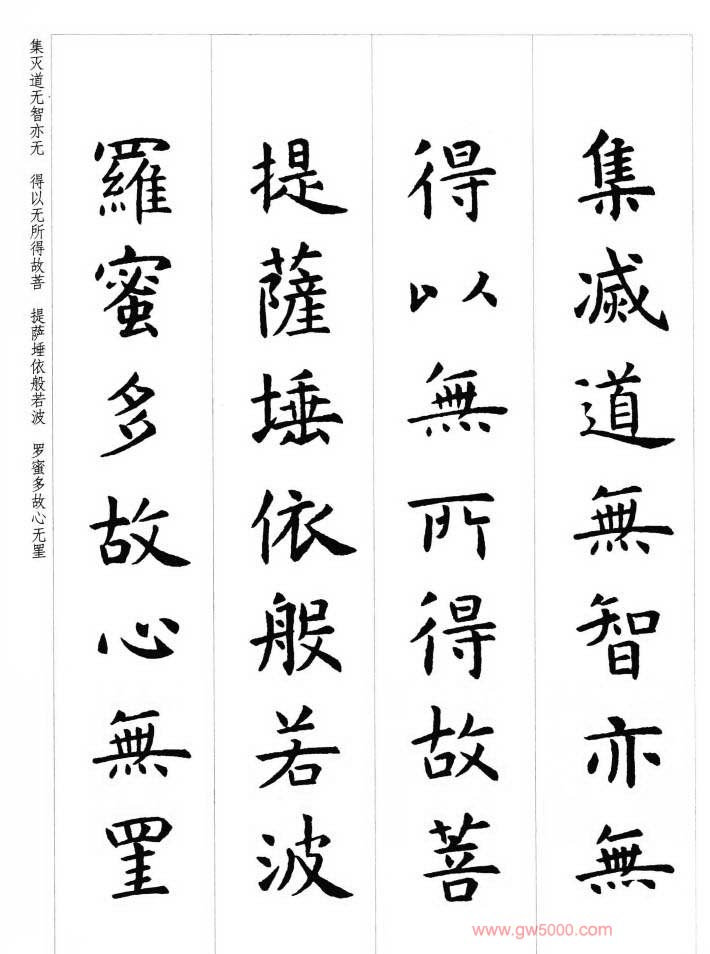 集滅道無智亦無
得以無所得故菩
提薩埵依般若波
羅蜜多故心無罣
集灭道无智亦无 得以无所得故菩 提萨埵依般若波 罗蜜多故心无罣
www.gw5000.com